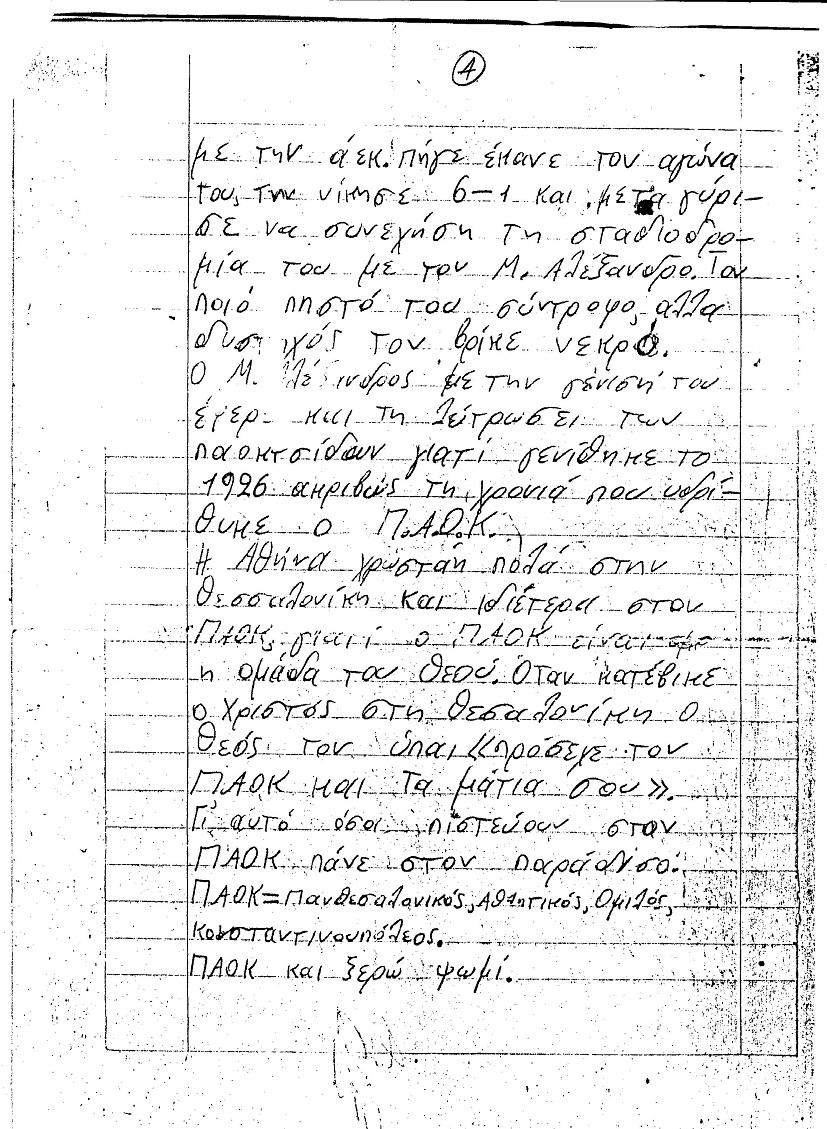 4
με την άεκ. πήγε έκανε τον αγώνα
του, την νίκησε 6-1 και, μετά γύρι-
σε να συνεχήση τη σταδιοδρο-
μία του με τον Μ. Αλέξανδρο. Τον
ποιό πηστό του σύντροφο, αλλα
δυστιχός τον βρίκε νεκρό.
Ο Μ. Αλέξανδρος με την γένισή του
έφερ- και τη λύτρωσει των
παοκτσίδων γιατί γενίθηκε το
1926 ακριβώς τη, χρονιά που υδρί-
θυκε ο Π.Α.Ο.Κ.
Η Αθήνα χρωστάη πολά στην
Θεσσαλονίκη και ιδιέτερα στον
ΠΑΟΚ, γιατί ο ΠΑΟΚ είναι
η ομάδα του Θεού. Όταν κατέβικε
ο Χριστός στη Θεσαλονίκη ο
Θεός του ύπαι «πρόσεχε τον
ΠΑΟΚ και τα μάτια σου».
Γι' αυτό όσοι πιστεύουν στον
ΠΑΟΚ πάνε στον παράδισο.
ΠΑΟΚ=Πανθεσαλονικός, Αθλητικός, Ομιλός,
Κονσταντινουπόλεος.
ΠΑΟΚ και ξερώ ψωμί.